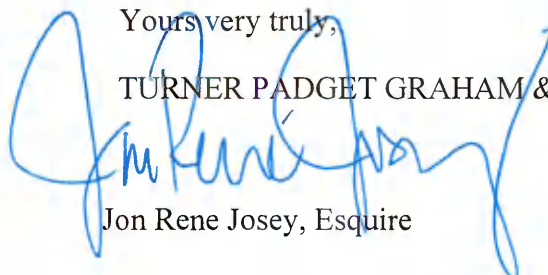 Yours very truly,
TURNER PADGET GRAHAM &
Jon Rene Josey
Jon Rene Josey, Esquire